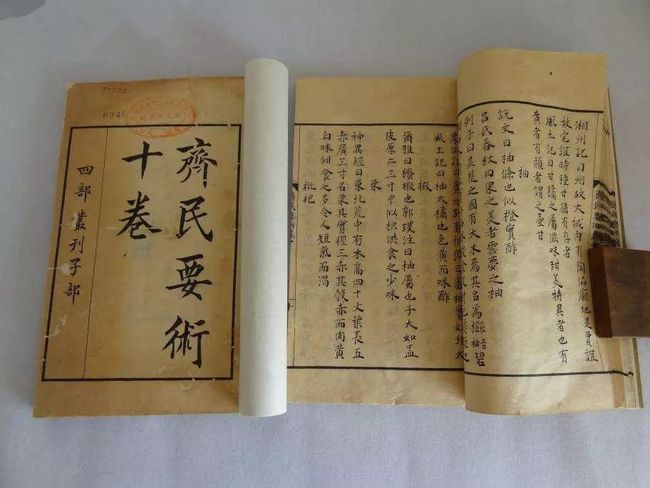 齊民要術
十卷
四部叢刊子部
湘州記曰州故大城內有陶侃廟地是賈誼
故宅誼時種甘猶有存者
風土記曰甘橘之屬滋味甜美特異者也有
黄者有頳者謂之壺甘
柚
說文曰柚條也似橙實酢
吕氏春秋曰果之美者雲夢之柚
列子曰吳楚之國有大木焉其名為櫾碧
風土記曰柚大橘也色黄而味酢
椵
爾雅曰櫠椵也郭璞注曰柚屬也子大如盂
皮厚二三寸中似枳供食之少味
栗
神異經曰東北荒中有木高四十丈葉長五
赤廣三寸名栗其實徑三赤其殼赤而肉黄
白味甜食之多令人短氣而渴
枇杷